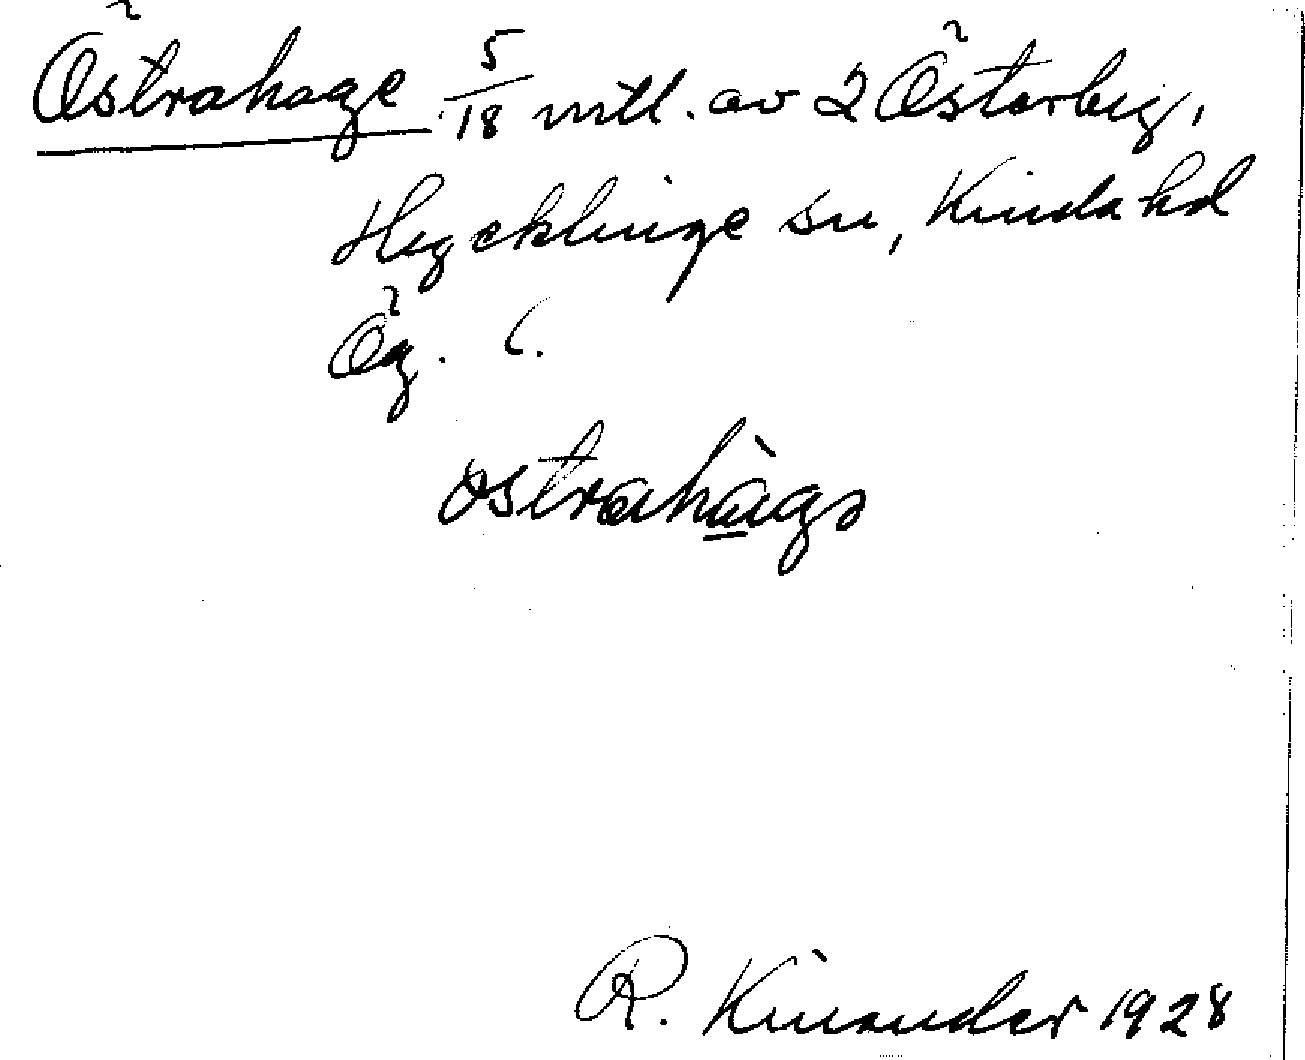 Östrahage 5/18 mtl. av 2 Österby,
Hycklinge sn, Kinda hd
Ög. (.
östrahàgə
R. Kinander 1928